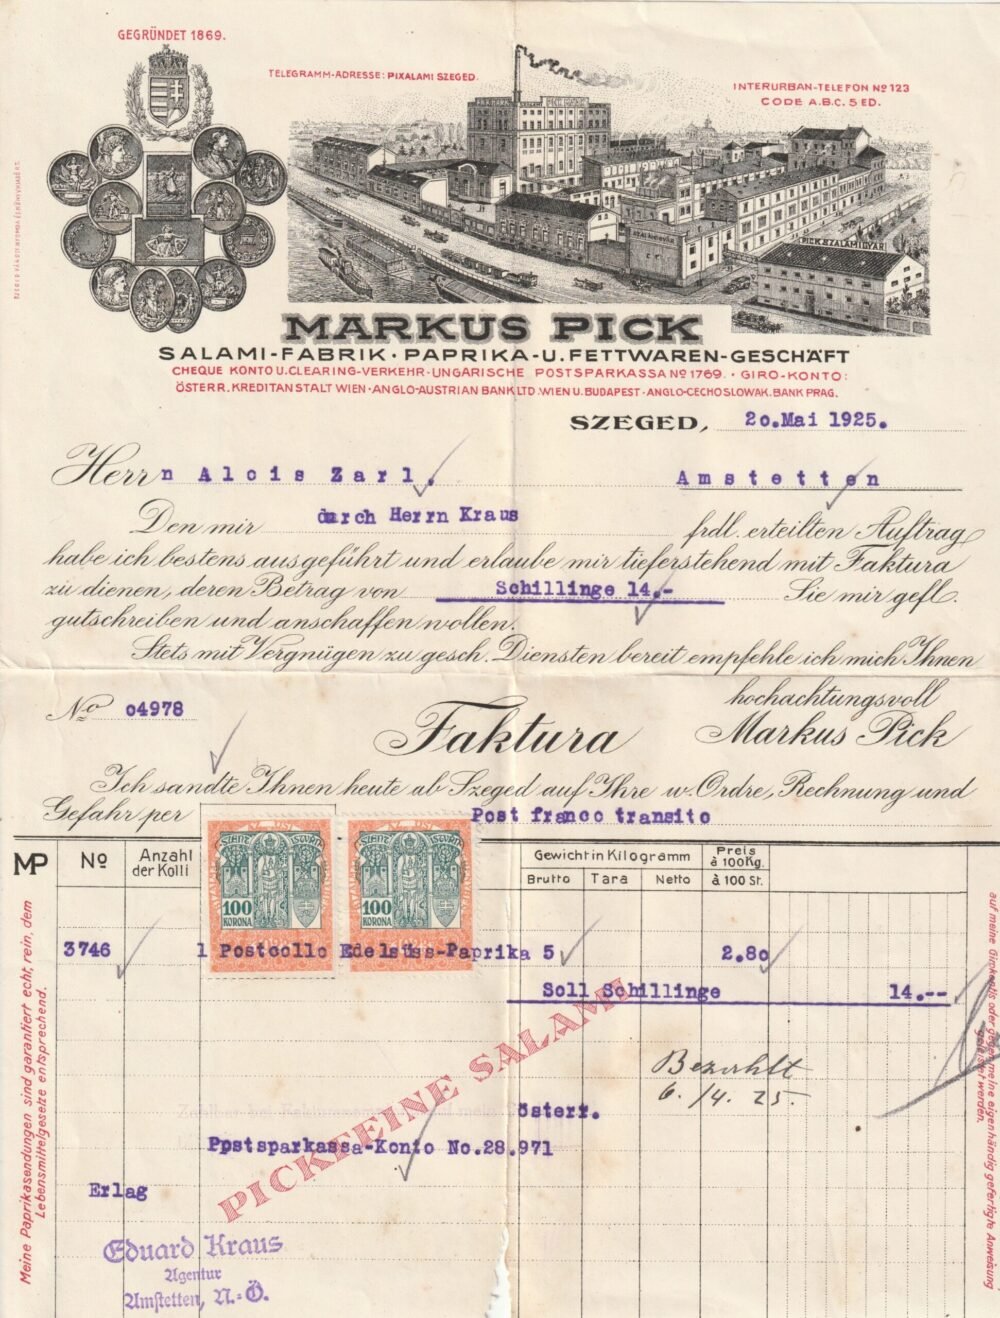 GEGRÜNDET 1869.
TELEGRAMM-ADRESSE: PIXALAMI SZEGED.
INTERURBAN-TELEFON Nº 123
CODE A.B.C. 5 ED.
PICK MÁRK
PICK SZALÁMIGYÁR
MARKUS PICK
SALAMI-FABRIK · PAPRIKA- U. FETTWAREN-GESCHÄFT
CHEQUE KONTO U. CLEARING-VERKEHR · UNGARISCHE POSTSPARKASSA Nº 1769. · GIRO-KONTO:
ÖSTERR. KREDITANSTALT WIEN · ANGLO-AUSTRIAN BANK LTD. WIEN U. BUDAPEST · ANGLO-CECHOSLOWAK. BANK PRAG.
SZEGED, 20.Mai 1925.
Herrn Alois Zarl. Amstetten
Den mir durch Herrn Kraus frdl. erteilten Auftrag
habe ich bestens ausgeführt und erlaube mir tieferstehend mit Faktura
zu dienen, deren Betrag von Schillinge 14.- Sie mir gefl.
gutschreiben und anschaffen wollen.
Stets mit Vergnügen zu gesch. Diensten bereit empfehle ich mich Ihnen
hochachtungsvoll
No 04978 Faktura Markus Pick
Ich sandte Ihnen heute ab Szeged auf Ihre w. Ordre, Rechnung und
Gefahr per Post franco transito
MP Nº Anzahl der Kolli Gewicht in Kilogramm Preis à 100 Kg.
Brutto Tara Netto à 100 St.
SZENT ISTVÁN SZENT ISTVÁN
100 KORONA 100 KORONA
3746 1 Postcollo Edelsüss-Paprika 5 2.80
Soll Schillinge 14.--
PICKFEINE SALAMI
Bezahlt
6./4. 25.
österr.
Postsparkassa-Konto No.28.971
Erlag
Eduard Kraus
Agentur
Amstetten, N.-Ö.
Meine Paprikasendungen sind garantiert echt, rein, dem
Lebensmittelgesetze entsprechend.
auf meine Girokonti oder gegen meine eigenhändig gefertigte Anweisung
geleistet werden.